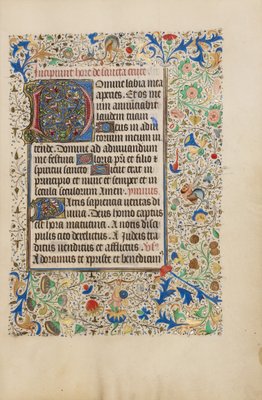 Incipiunt hore de sancta cruce.
Domine labia mea
aperies. Et os me
um annunciabit
laudem tuam
Deus in adiu
torium meum in
tende. Domine ad adiuuandum
me festina Gloria patri et filio et
spiritui sancto Sicut erat in
principio et nunc et semper et in
secula seculorum Amen. ymnus.
Patris sapiencia ueritas di
uina. Deus homo captus
est hora matutina. A notis disci
pulis cito derelictus. A Iudeis tra
ditus uenditus et afflictus.
Adoramus te christe et benedicim